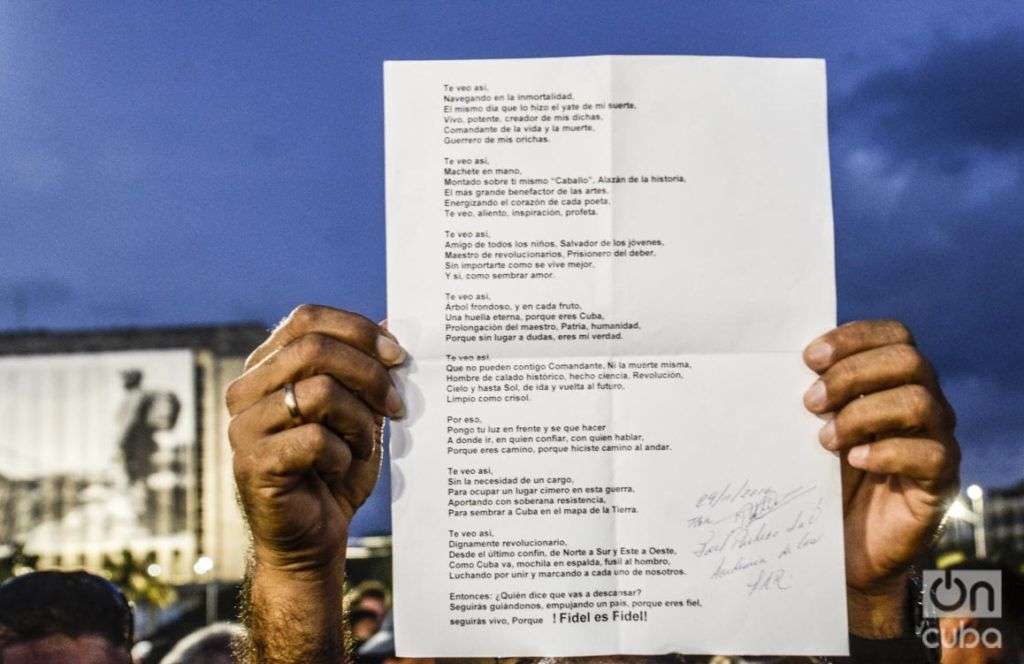 Te veo asi,
Navegando en la inmortalidad,
El mismo dia que lo hizo el yate de mi suerte,
Vivo, potente, creador de mis dichas,
Comandante de la vida y la muerte,
Guerrero de mis orichas.
Te veo asi,
Machete en mano,
Montado sobre ti mismo "Caballo", Alazán de la historia,
El más grande benefactor de las artes,
Energizando el corazón de cada poeta,
Te veo, aliento, inspiración, profeta.
Te veo asi,
Amigo de todos los niños, Salvador de los jóvenes,
Maestro de revolucionarios, Prisionero del deber,
Sin importarte como se vive mejor,
Y si, como sembrar amor.
Te veo asi,
Árbol frondoso, y en cada fruto,
Una huella eterna, porque eres Cuba,
Prolongación del maestro, Patria, humanidad,
Porque sin lugar a dudas, eres mi verdad.
Te veo asi
Que no pueden contigo Comandante, Ni la muerte misma,
Hombre de calado histórico, hecho ciencia, Revolución,
Cielo y hasta Sol, de ida y vuelta al futuro,
Limpio como crisol.
Por eso,
Pongo tu luz en frente y se que hacer
A donde ir, en quien confiar, con quien hablar,
Porque eres camino, porque hiciste camino al andar.
Te veo asi,
Sin la necesidad de un cargo,
Para ocupar un lugar cimero en esta guerra,
Aportando con soberana resistencia,
Para sembrar a Cuba en el mapa de la Tierra.
Te veo asi,
Dignamente revolucionario,
Desde el último confin, de Norte a Sur y Este a Oeste,
Como Cuba va, mochila en espalda, fusil al hombro,
Luchando por unir y marcando a cada uno de nosotros.
Entonces: ¿Quién dice que vas a descansar?
Seguirás guiándonos, empujando un país, porque eres fiel,
seguirás vivo, Porque ! Fidel es Fidel!
FAR
ON
cuba